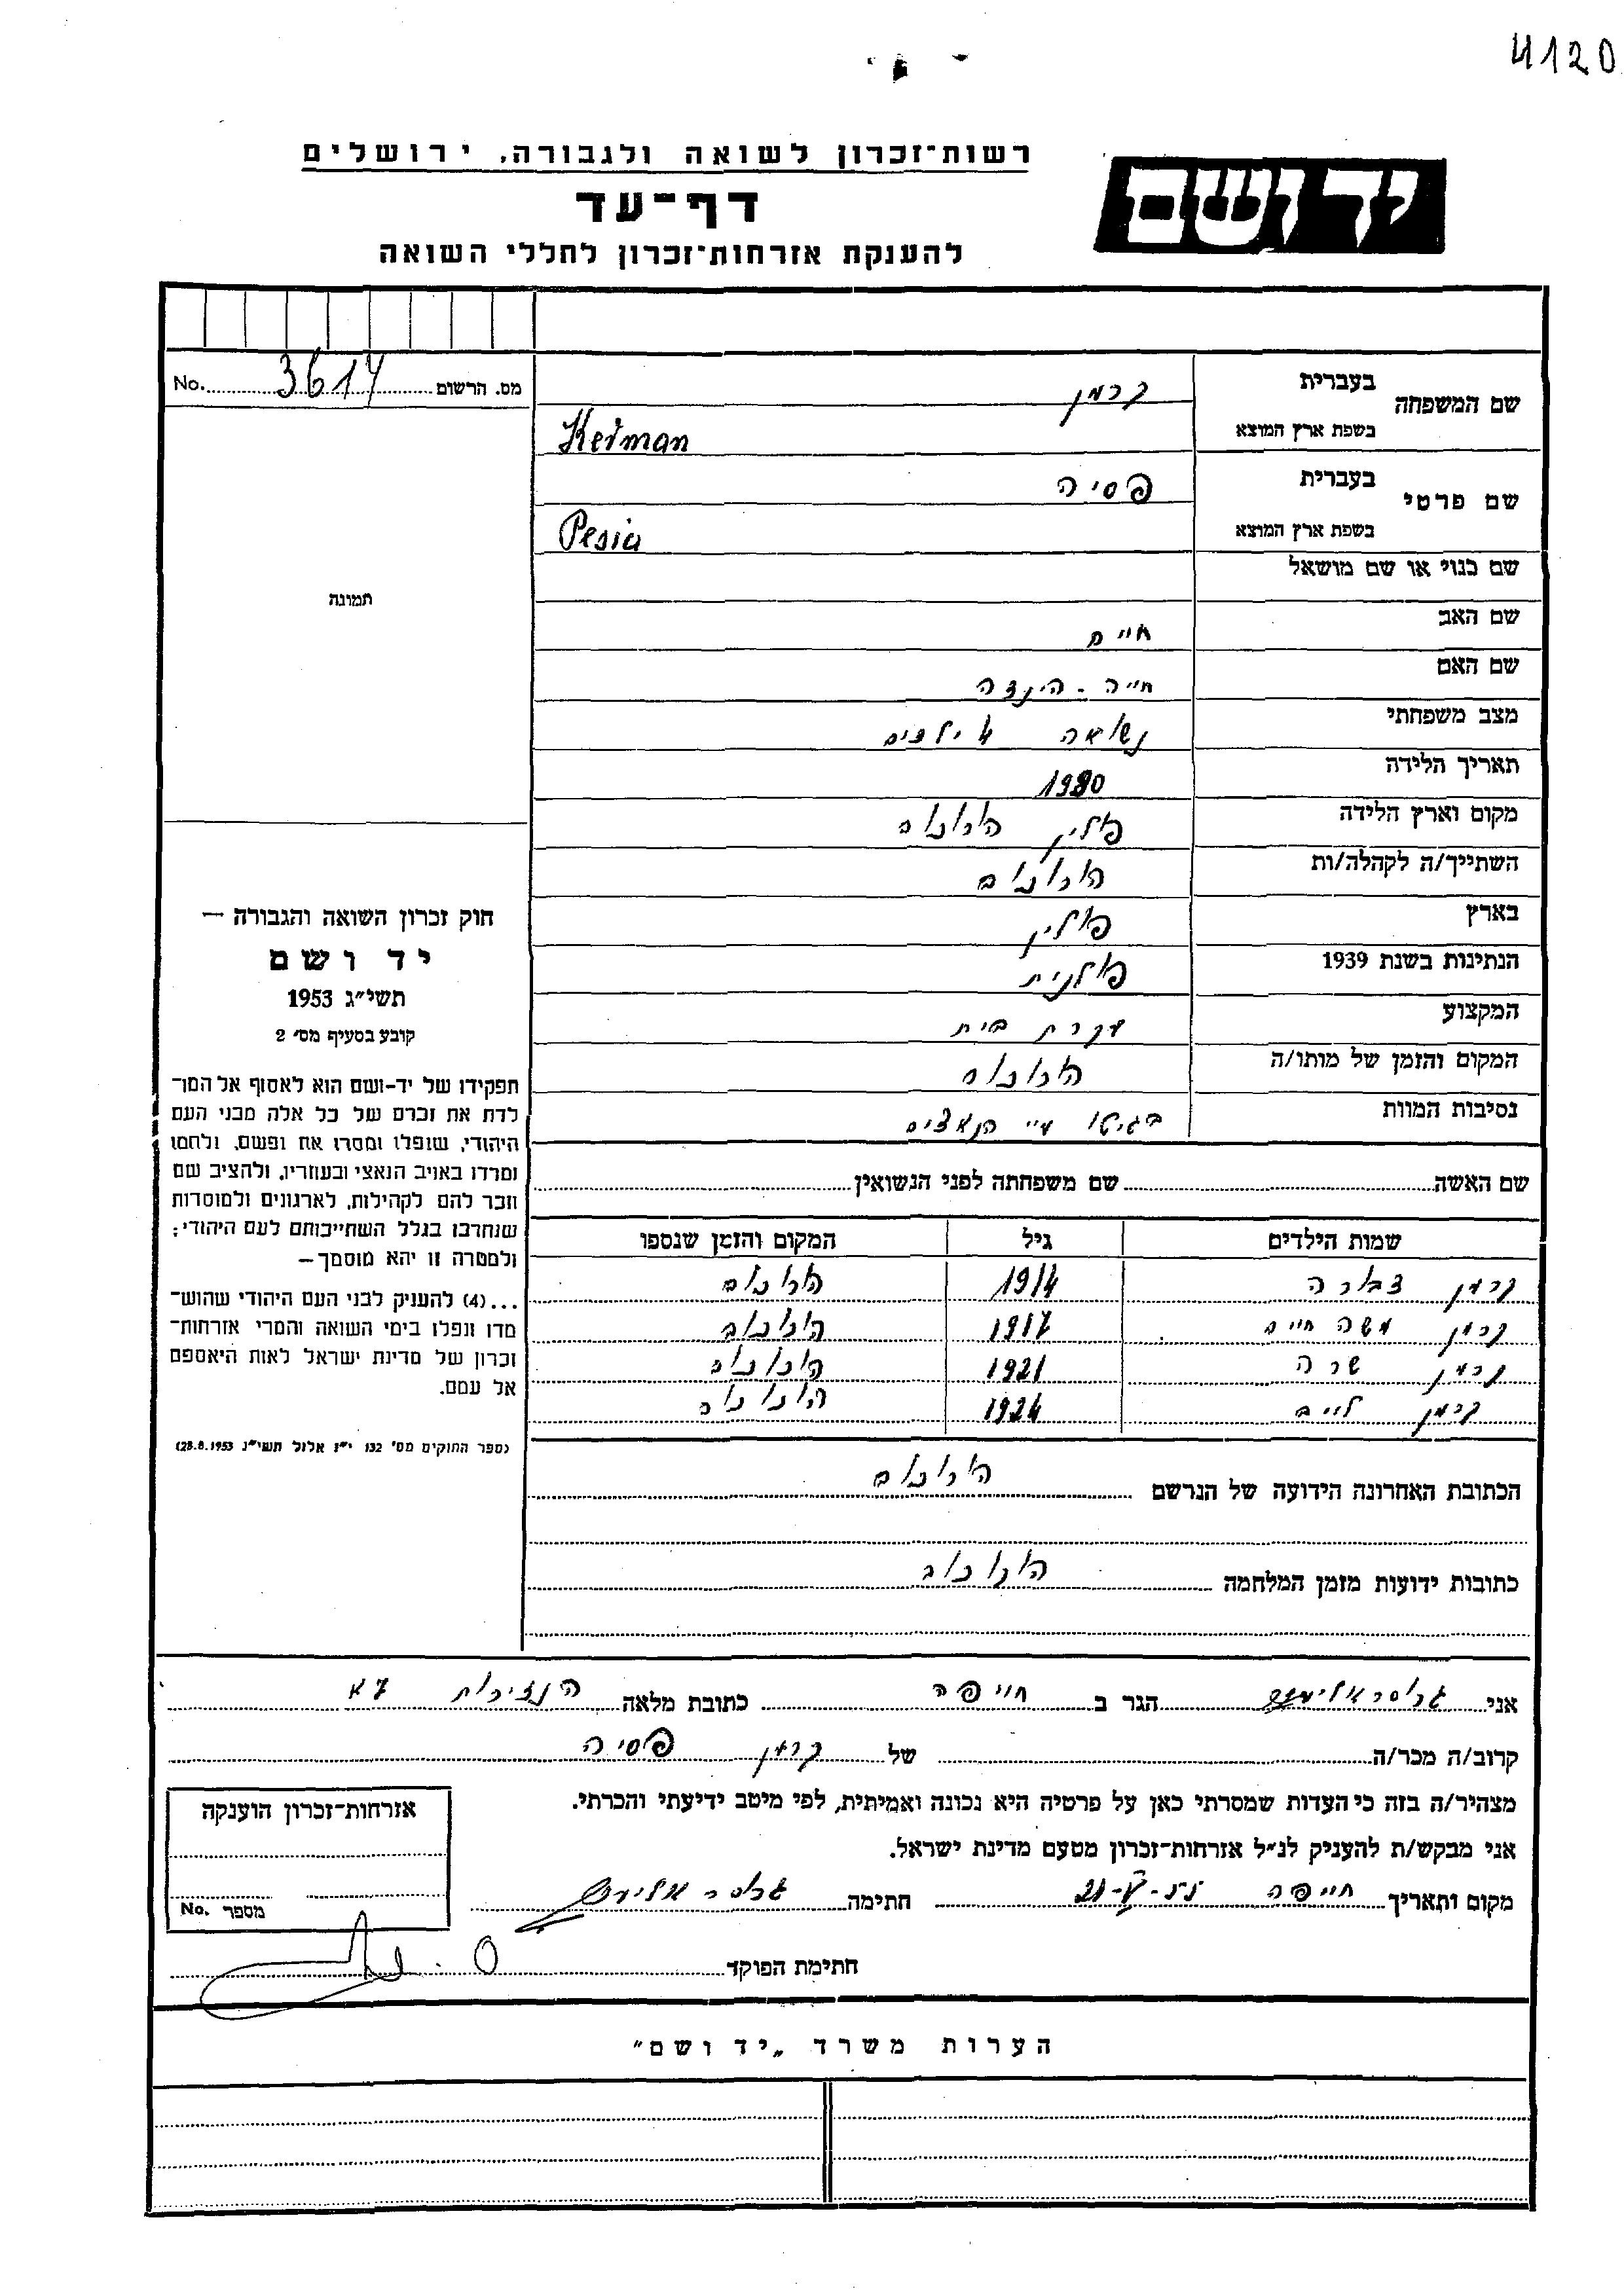 4120
רשות־זכרון לשואה ולגבורה, ירושלים
יד ושם
דף־עד
להענקת אזרחות־זכרון לחללי השואה
No. 3614 מס. הרשום
שם המשפחה בעברית קרמן
בשפת ארץ המוצא Kerman
שם פרטי בעברית פסיה
בשפת ארץ המוצא Pesia
שם כנוי או שם מושאל
שם האב חיים
שם האם חייה - הינדה
מצב משפחתי נשואה 4 ילדים
תאריך הלידה
מקום וארץ הלידה פולין
השתייך/ה לקהלה/ות
בארץ פולין
הנתינות בשנת 1939 פולנית
המקצוע עקרת בית
המקום והזמן של מותו/ה
נסיבות המוות בגיטו ע"י הנאצים
שם האשה שם משפחתה לפני הנשואין
שמות הילדים גיל המקום והזמן שנספו
קרמן דבורה 1914
קרמן משה חיים 1917
קרמן שרה 1921
קרמן לייב 1924
הכתובת האחרונה הידועה של הנרשם
כתובות ידועות מזמן המלחמה
תמונה
חוק זכרון השואה והגבורה —
יד ושם
תשי״ג 1953
קובע בסעיף מס׳ 2
תפקידו של יד-ושם הוא לאסוף אל המו־
לדת את זכרם של כל אלה מבני העם
היהודי, שנפלו ומסרו את נפשם, נלחמו
ומרדו באויב הנאצי ובעוזריו, ולהציב שם
וזכר להם לקהילות, לארגונים ולמוסדות
שנחרבו בגלל השתייכותם לעם היהודי;
ולמטרה זו יהא מוסמך—
...(4) להעניק לבני העם היהודי שהוש־
מדו ונפלו בימי השואה והמרי אזרחות־
זכרון של מדינת ישראל לאות היאספם
אל עמם.
(ספר החוקים מס׳ 132 י״ז אלול תשי״ג 28.8.1953)
אני הגר ב חייפה כתובת מלאה
קרוב/ה מכר/ה של קרמן פסיה
מצהיר/ה בזה כי העדות שמסרתי כאן על פרטיה היא נכונה ואמיתית, לפי מיטב ידיעתי והכרתי.
אני מבקש/ת להעניק לנ״ל אזרחות־זכרון מטעם מדינת ישראל.
מקום ותאריך חייפה חתימה
חתימת הפוקד
אזרחות־זכרון הוענקה
מספר No.
הערות משרד „יד ושם״